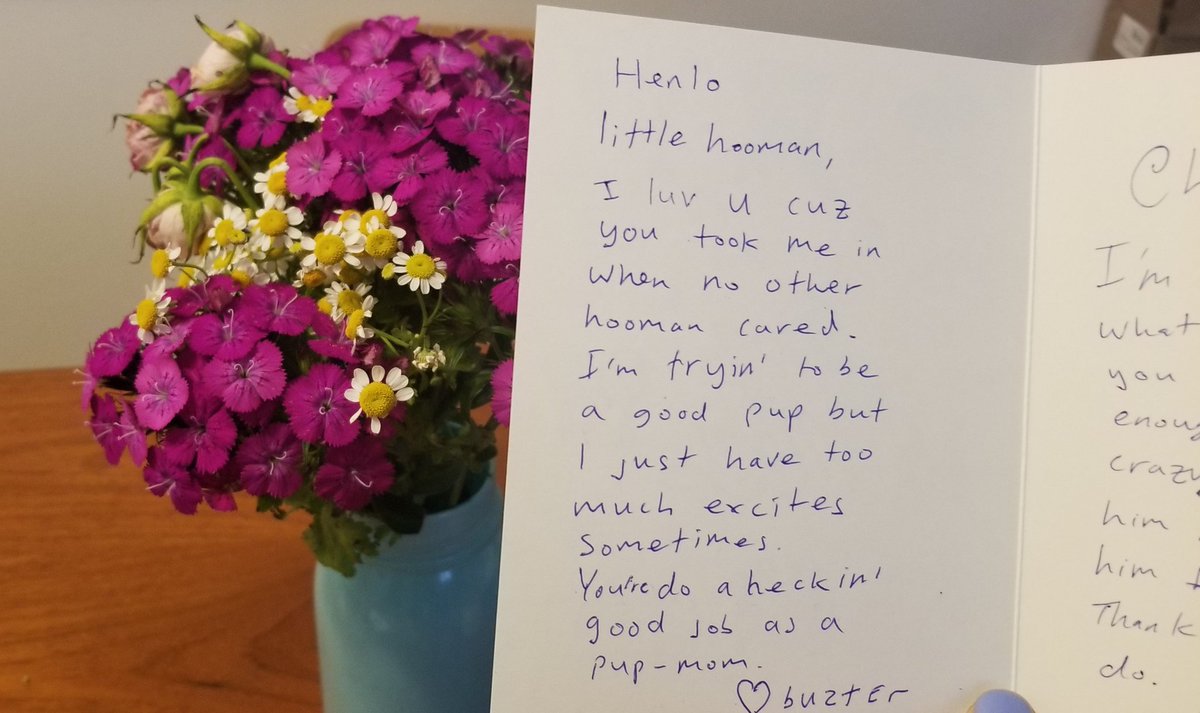 Henlo
little hooman,
I luv u cuz
you took me in
when no other
hooman cared.
I'm tryin' to be
a good pup but
I just have too
much excites
sometimes.
You're do a heckin'
good job as a
pup-mom.
♡ buzter
I'm
what
you
crazy
him
him
Thank
do.